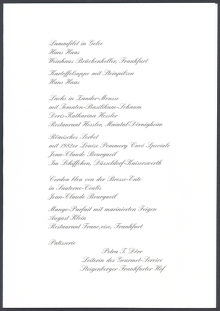 Lammfilet in Gelee
Hans Haas
Weinhaus Brückenkeller, Frankfurt
Kartoffelsuppe mit Steinpilzen
Hans Haas
Lachs in Zander-Mousse
mit Tomaten-Basilikum-Schaum
Doris-Katharina Hessler
Restaurant Hessler, Maintal-Dörnigheim
Römisches Sorbet
mit 1982er Louise Pommery Cuvé Speciale
Jean-Claude Bourgueil
Im Schiffchen, Düsseldorf-Kaiserswerth
Cordon bleu von der Bresse-Ente
in Sauterne-Coulis
Jean-Claude Bourgueil
Mango-Parfait mit marinierten Feigen
August Klein
Restaurant Français, Frankfurt
Patisserie
Petra T. Dörr
Leiterin des Gourmet-Service
Steigenberger Frankfurter Hof